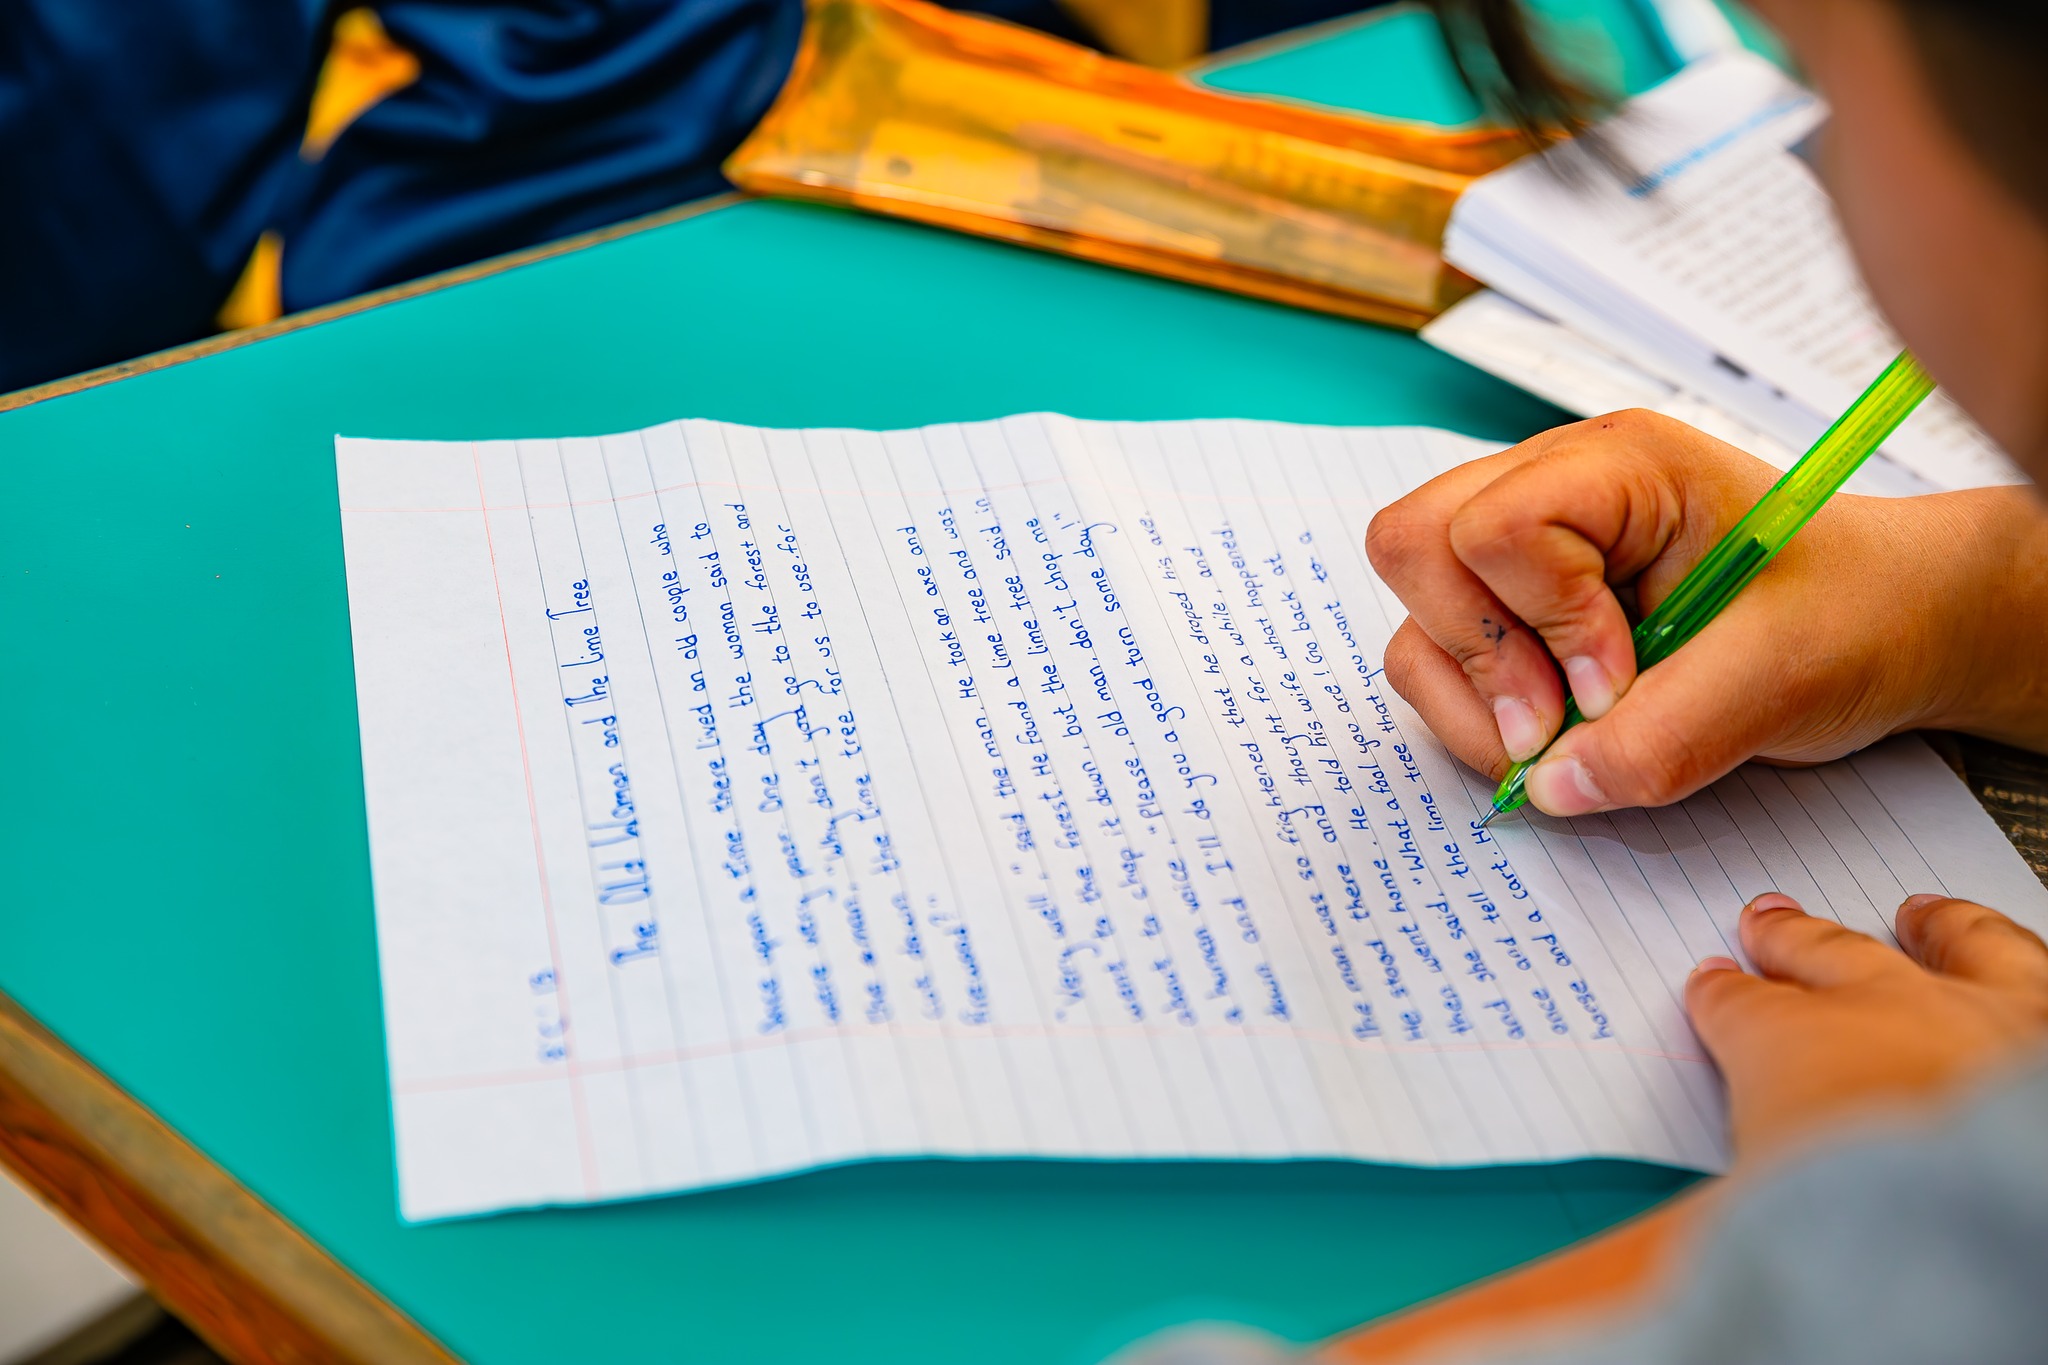 The Old Woman and The Lime Tree
Once upon a time there lived an old couple who
were very poor. One day the woman said to
the man. "Why don't you go to the forest and
cut down the lime tree for us to use for
firewood?"
"Very well," said the man. He took an axe and
went to the forest. He found a lime tree and was
about to chop it down, but the lime tree said in
a human voice. "Please, old man, don't chop me
down and I'll do you a good turn some day!"
The man was so frightened that he droped his axe.
He stood there and thought for a while, and
then went home. He told his wife what happened.
and she said. "What a fool you are! Go back at
once and tell the lime tree that you want to a
horse and a cart. He